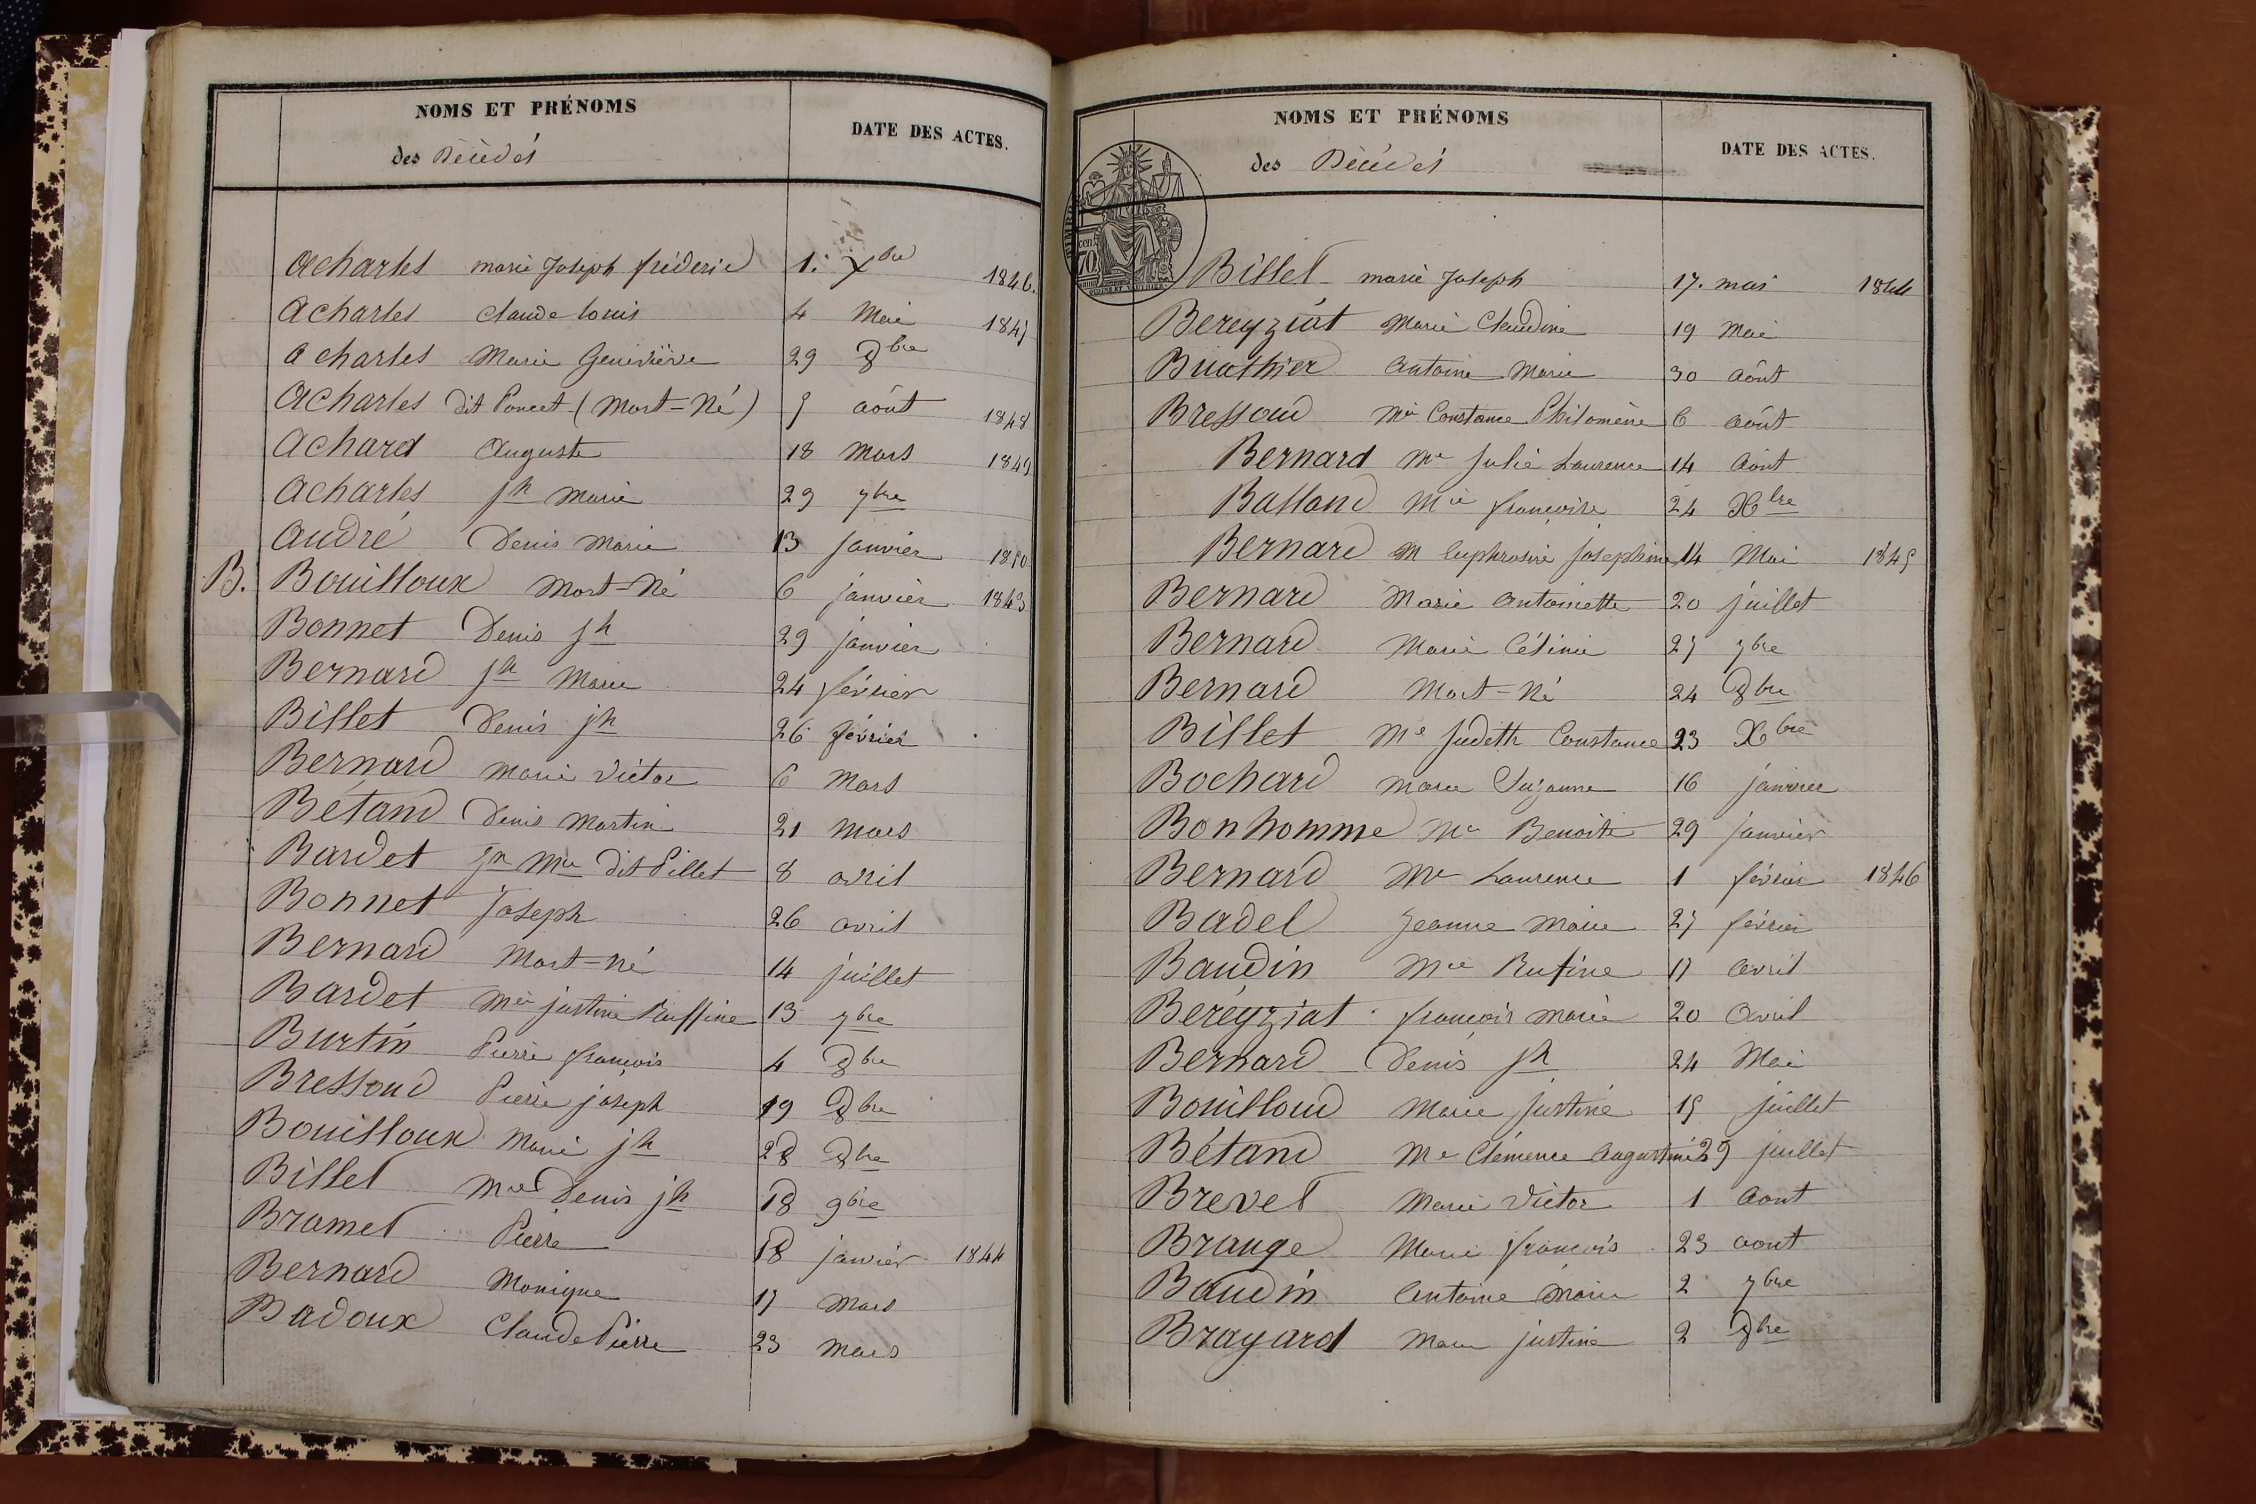 NOMS ET PRÉNOMS
des Décédés
DATE DES ACTES.
Acharles marie Joseph fréderic 1. Xbre 1846.
Acharles Claude louis 4 Mai 1847
Acharles Marie Geneviève 29 8bre
Acharles dit Poncet (Mort-Né) 5 aôut 1848
Achard Auguste 18 Mars 1849
Acharles jh Marie 29 7bre
André Denis Marie 13 janvier 1850
B. Bouilloux Mort-Né 6 janvier 1843
Bonnet Denis jh 29 janvier
Bernard jh Marie 24 février
Billet Denis jh 26 février
Bernard Marie Victor 6 Mars
Bétand Denis Martin 21 Mars
Bardet jn Mie dit Pillet 8 avril
Bonnet Joseph 26 avril
Bernard Mort-né 14 juillet
Bardet Mie justine Ruffine 13 7bre
Burtin Pierre françois 4 8bre
Bressoud Pierre joseph 19 8bre
Bouilloux Marie jh 28 8bre
Billet Mie Denis jh 18 9bre
Bramet Pierre 18 janvier 1844
Bernard Monique 17 Mars
Badoux Claude Pierre 23 Mars
NOMS ET PRÉNOMS
des Décédés
DATE DES ACTES.
70
Billet marie Joseph 17. mai 1844
Bereyziat Marie Claudine 19 Mai
Buathier Antoine Marie 30 Aôut
Bressoud Mie Constance Philomène 6 aôut
Bernard Me Julie Laurence 14 Aôut
Balland Mie françoise 24 Xbre
Bernard M Euphrosine Josephine 14 Mai 1845
Bernard Marie Antoinette 20 juillet
Bernard Marie Célinie 25 7bre
Bernard Mort-Né 24 8bre
Billet Me Judith Constance 23 Xbre
Bochard Marie Suzanne 16 janvier
Bonhomme Me Benoite 29 janvier
Bernard Me Laurence 1 février 1846
Badel Jeanne Marie 27 février
Baudin Mie Rufine 17 avril
Beréyziat françois Marie 20 Avril
Bernard Denis jh 24 Mai
Bouilloud Marie justine 15 juillet
Bétand Me Clémence Augustine 29 juillet
Brevet Marie Victor 1 Aout
Brange Marie françois 23 aout
Baudin Antoine Marie 2 7bre
Brayard Marie justine 2 8bre